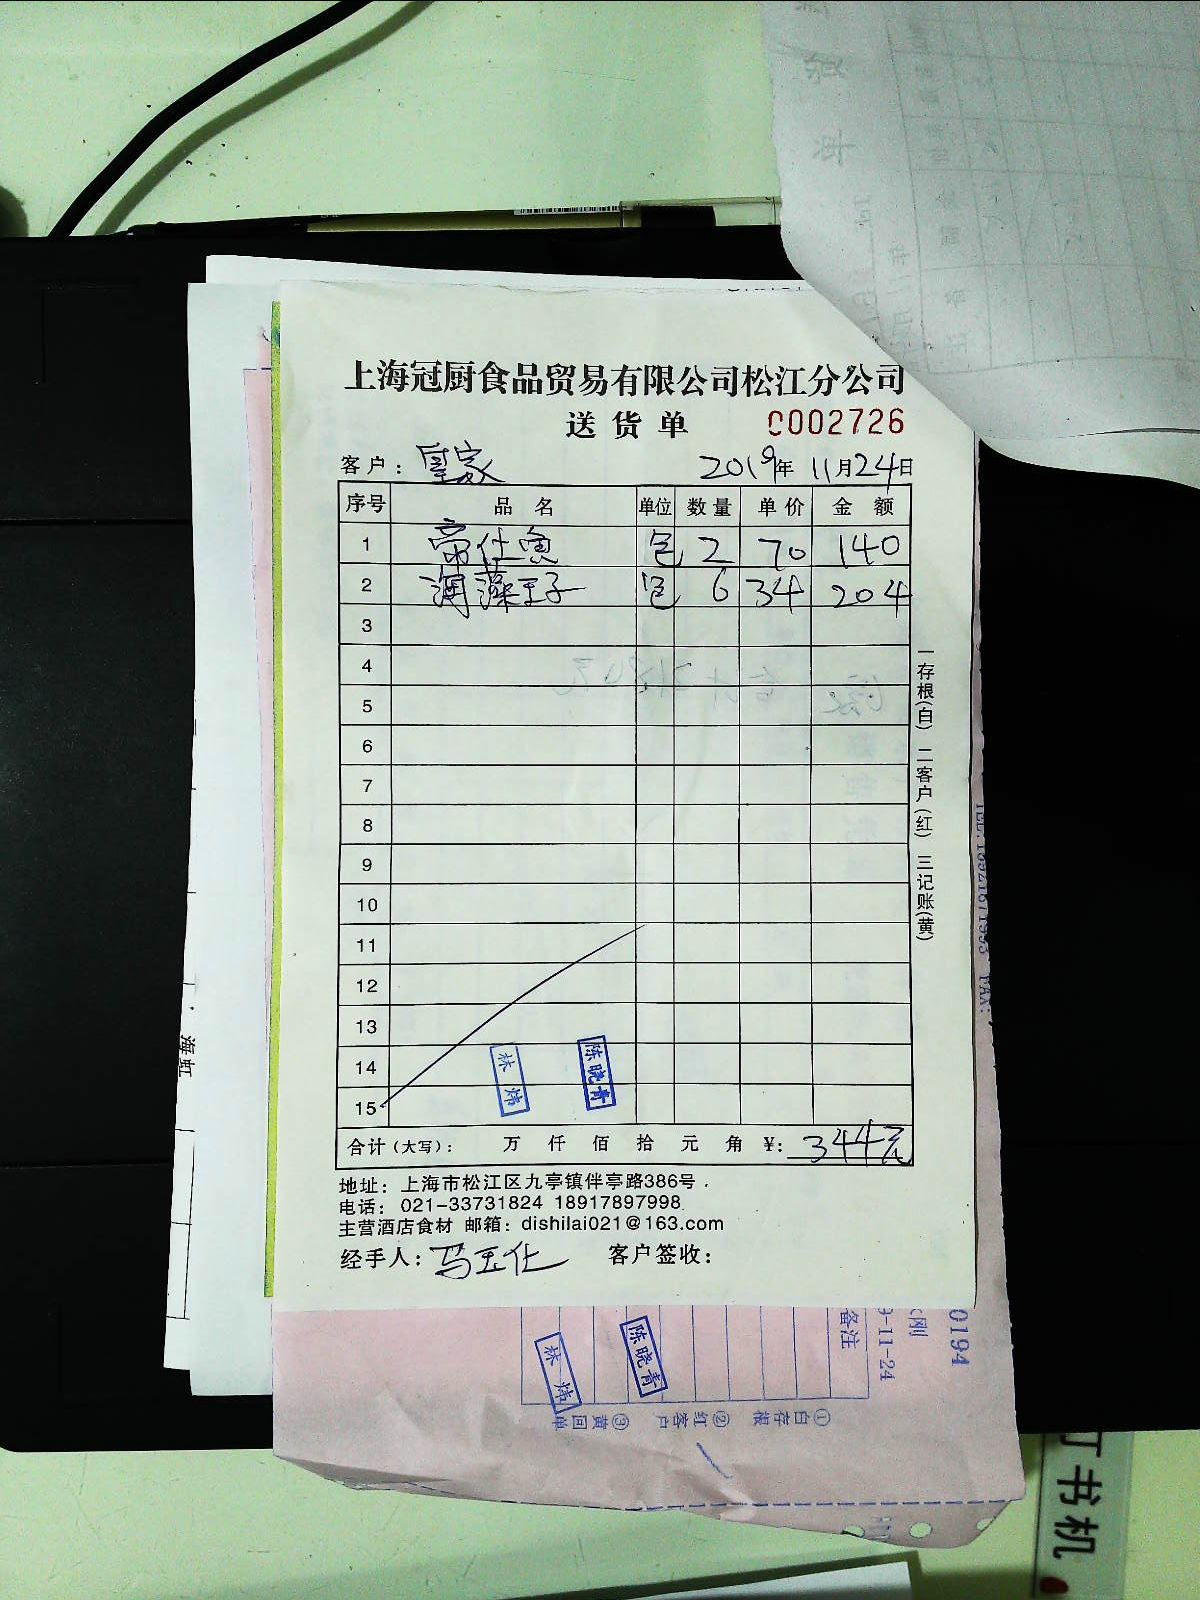 上海冠厨食品贸易有限公司松江分公司
送货单 C002726
客户: 皇家 2019年11月24日
序号 品名 单位 数量 单价 金额
1 帝仕鱼 包 2 70 140
2 海藻王子 包 6 34 204
3
4
5
6
7
8
9
10
11
12
13
14
15
林炜 陈晓青
合计(大写): 万 仟 佰 拾 元 角 ¥: 344元
地址: 上海市松江区九亭镇伴亭路386号.
电话: 021-33731824 18917897998
主营酒店食材 邮箱: dishilai021@163.com
经手人: 马玉仕 客户签收:
一存根(白) 二客户(红) 三记账(黄)
海虹
林炜 陈晓青
备注
9-11-24
0194
①白存根 ②红客户 ③黄回单
订书机